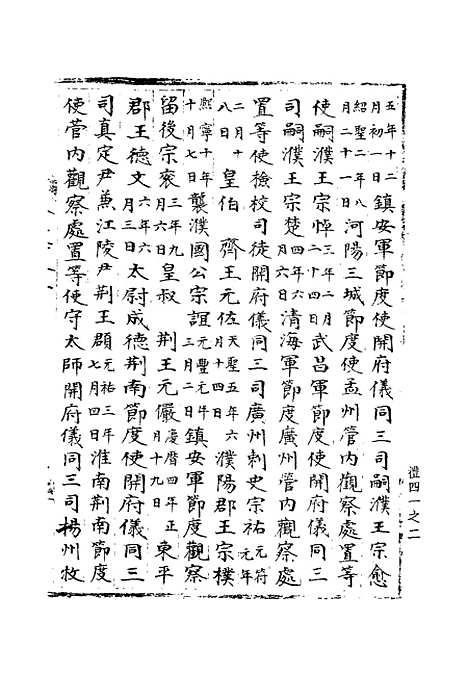 五年十二月初一日鎮安軍節度使開府儀同三司嗣濮王宗愈
紹聖二年八月二十一日河陽三城節度使孟州管內觀察處置等
使嗣濮王宗悼三年二月二十四日武昌軍節度使開府儀同三
司嗣濮王宗楚四年六月六日清海軍節度廣州管內觀察處
置等使檢校司徒開府儀同三司廣州刺史宗祐元符元年
二月十八日皇伯 齊王元佐天聖五年六月十四日濮陽郡王宗樸
熙寧十年十月七日襲濮國公宗誼元豐元年三月二日鎮安軍節度觀察
留後宗衮三年九月六日皇叔 荆王元儼慶曆四年正月十九日東平
郡王德文六年六月三日太尉成德荆南節度使開府儀同三
司真定尹兼江陵尹荆王頵元祐三年七月四日淮南荆南節度
使管內觀察處置等使守太師開府儀同三司揚州牧
禮四一之二